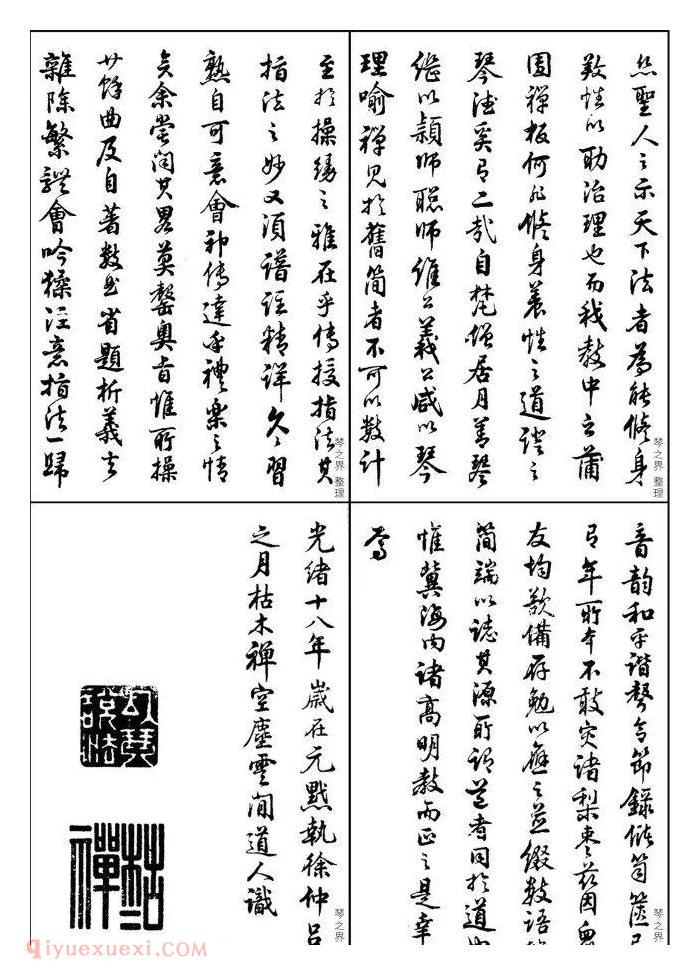 然聖人之示天下法者為能脩身
養性以助治理也而我教中之蒲
團禪板何非脩身養性之道證之
琴德奚有二哉自梵僧居月善琴
繼以穎師聰師維公義公咸以琴
理喻禪見於舊簡者不可以數計
琴之界 整理
至於操縵之雅在乎傳授指法其
指法之妙又須譜註精詳久久習
熟自可意會神傳達乎禮樂之情
矣余嘗聞其畧莫罄奧旨惟所操
廿餘曲及自著數曲省題析義去
雜除繁體會吟猱注意指法一歸
琴之界 整理
音韻和平諧聲合節錄備笥篋已
有年所本不敢災諸梨棗茲因衆
友均欲備存勉以應之並綴數語
簡端以誌其源所謂道者同於道也
惟冀海內諸高明教而正之是幸
焉
琴之界
光緒十八年歲在元黓執徐仲呂
之月枯木禪空塵雲閒道人識
以琴說法
枯木禪
琴之界
qiyuexuexi.com